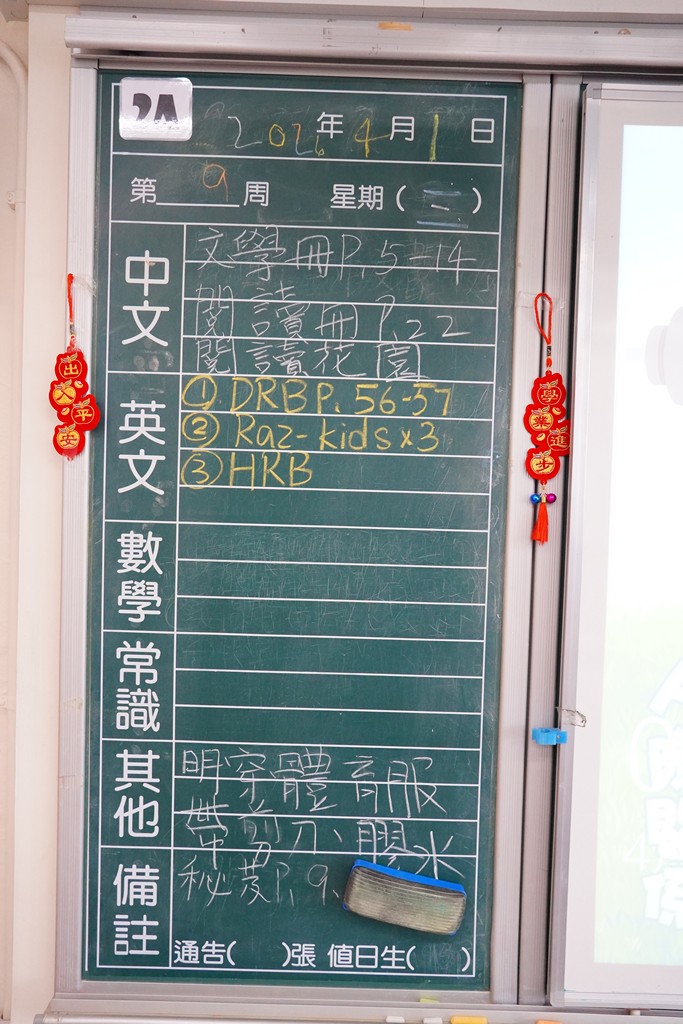 2A
2026年4月1日
第 9 周 星期( 三 )
中文
文學冊P.5-14
閱讀冊P.22
閱讀花園
英文
① DRB P. 56-57
② Raz-kids x3
③ HRB
數學
常識
其他
明穿體育服
帶剪刀、膠水
備註
秘笈P.9
通告( )張 值日生( )
出入平安
學業進步
關係